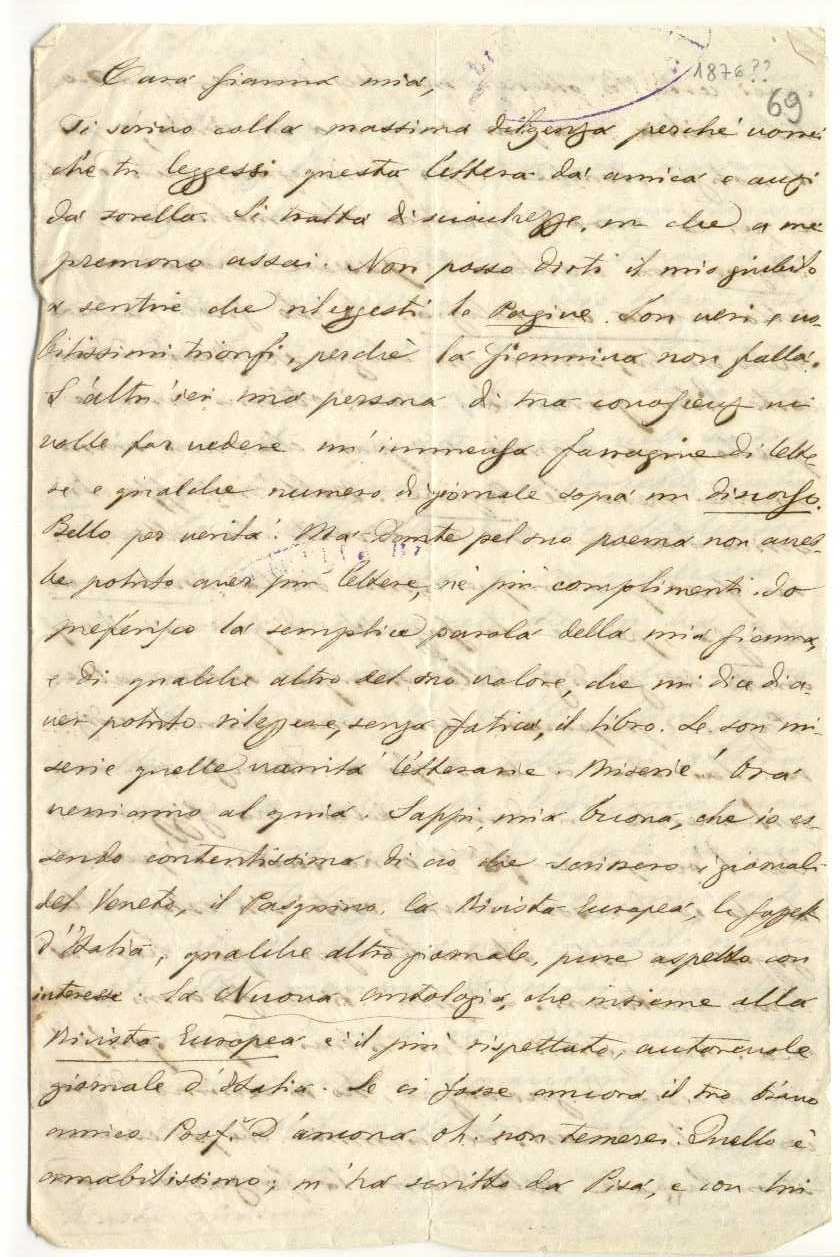 1876??
69
Cara Gianna mia,
Ti scrivo colla massima diligenza perchè vorrei
che tu leggessi questa lettera da amica e anzi
da sorella. Si tratta di sciocchezze, ma che a me
premono assai. Non posso dirti il mio giubilo
a sentire che rileggesti le Pagine. Son veri e no-
bilissimi trionfi, perchè la Giannina non falla.
L'altr'ieri una persona di tua conoscenza mi
volle far vedere un'immensa farragine di lette-
re e qualche numero di giornale sopra un discorso.
Bello per verità! Ma Dante pel suo poema non avreb-
be potuto aver più lettere, nè più complimenti. Io
preferisco la semplice parola della mia Gianna,
e di qualche altro del suo valore, che mi dice di a-
ver potuto rileggere, senza fatica, il libro. Le son mi-
serie quelle vanità letterarie. Miserie! Ora
veniamo al quia. Sappi, mia buona, che io es-
sendo contentissima di ciò che scrissero i giornali
del Veneto, il Pasquino, la Rivista Europea, la Gazzetta
d'Italia, qualche altro giornale, pure aspetto con
interesse la Nuova antologia, che insieme alla
Rivista Europea è il più rispettato, autorevole
giornale d'Italia. Se ci fosse ancora il tuo bravo
amico Prof.r D'ancona oh! non temerei. Quello è
amabilissimo; m'ha scritto da Pisa, e con tui